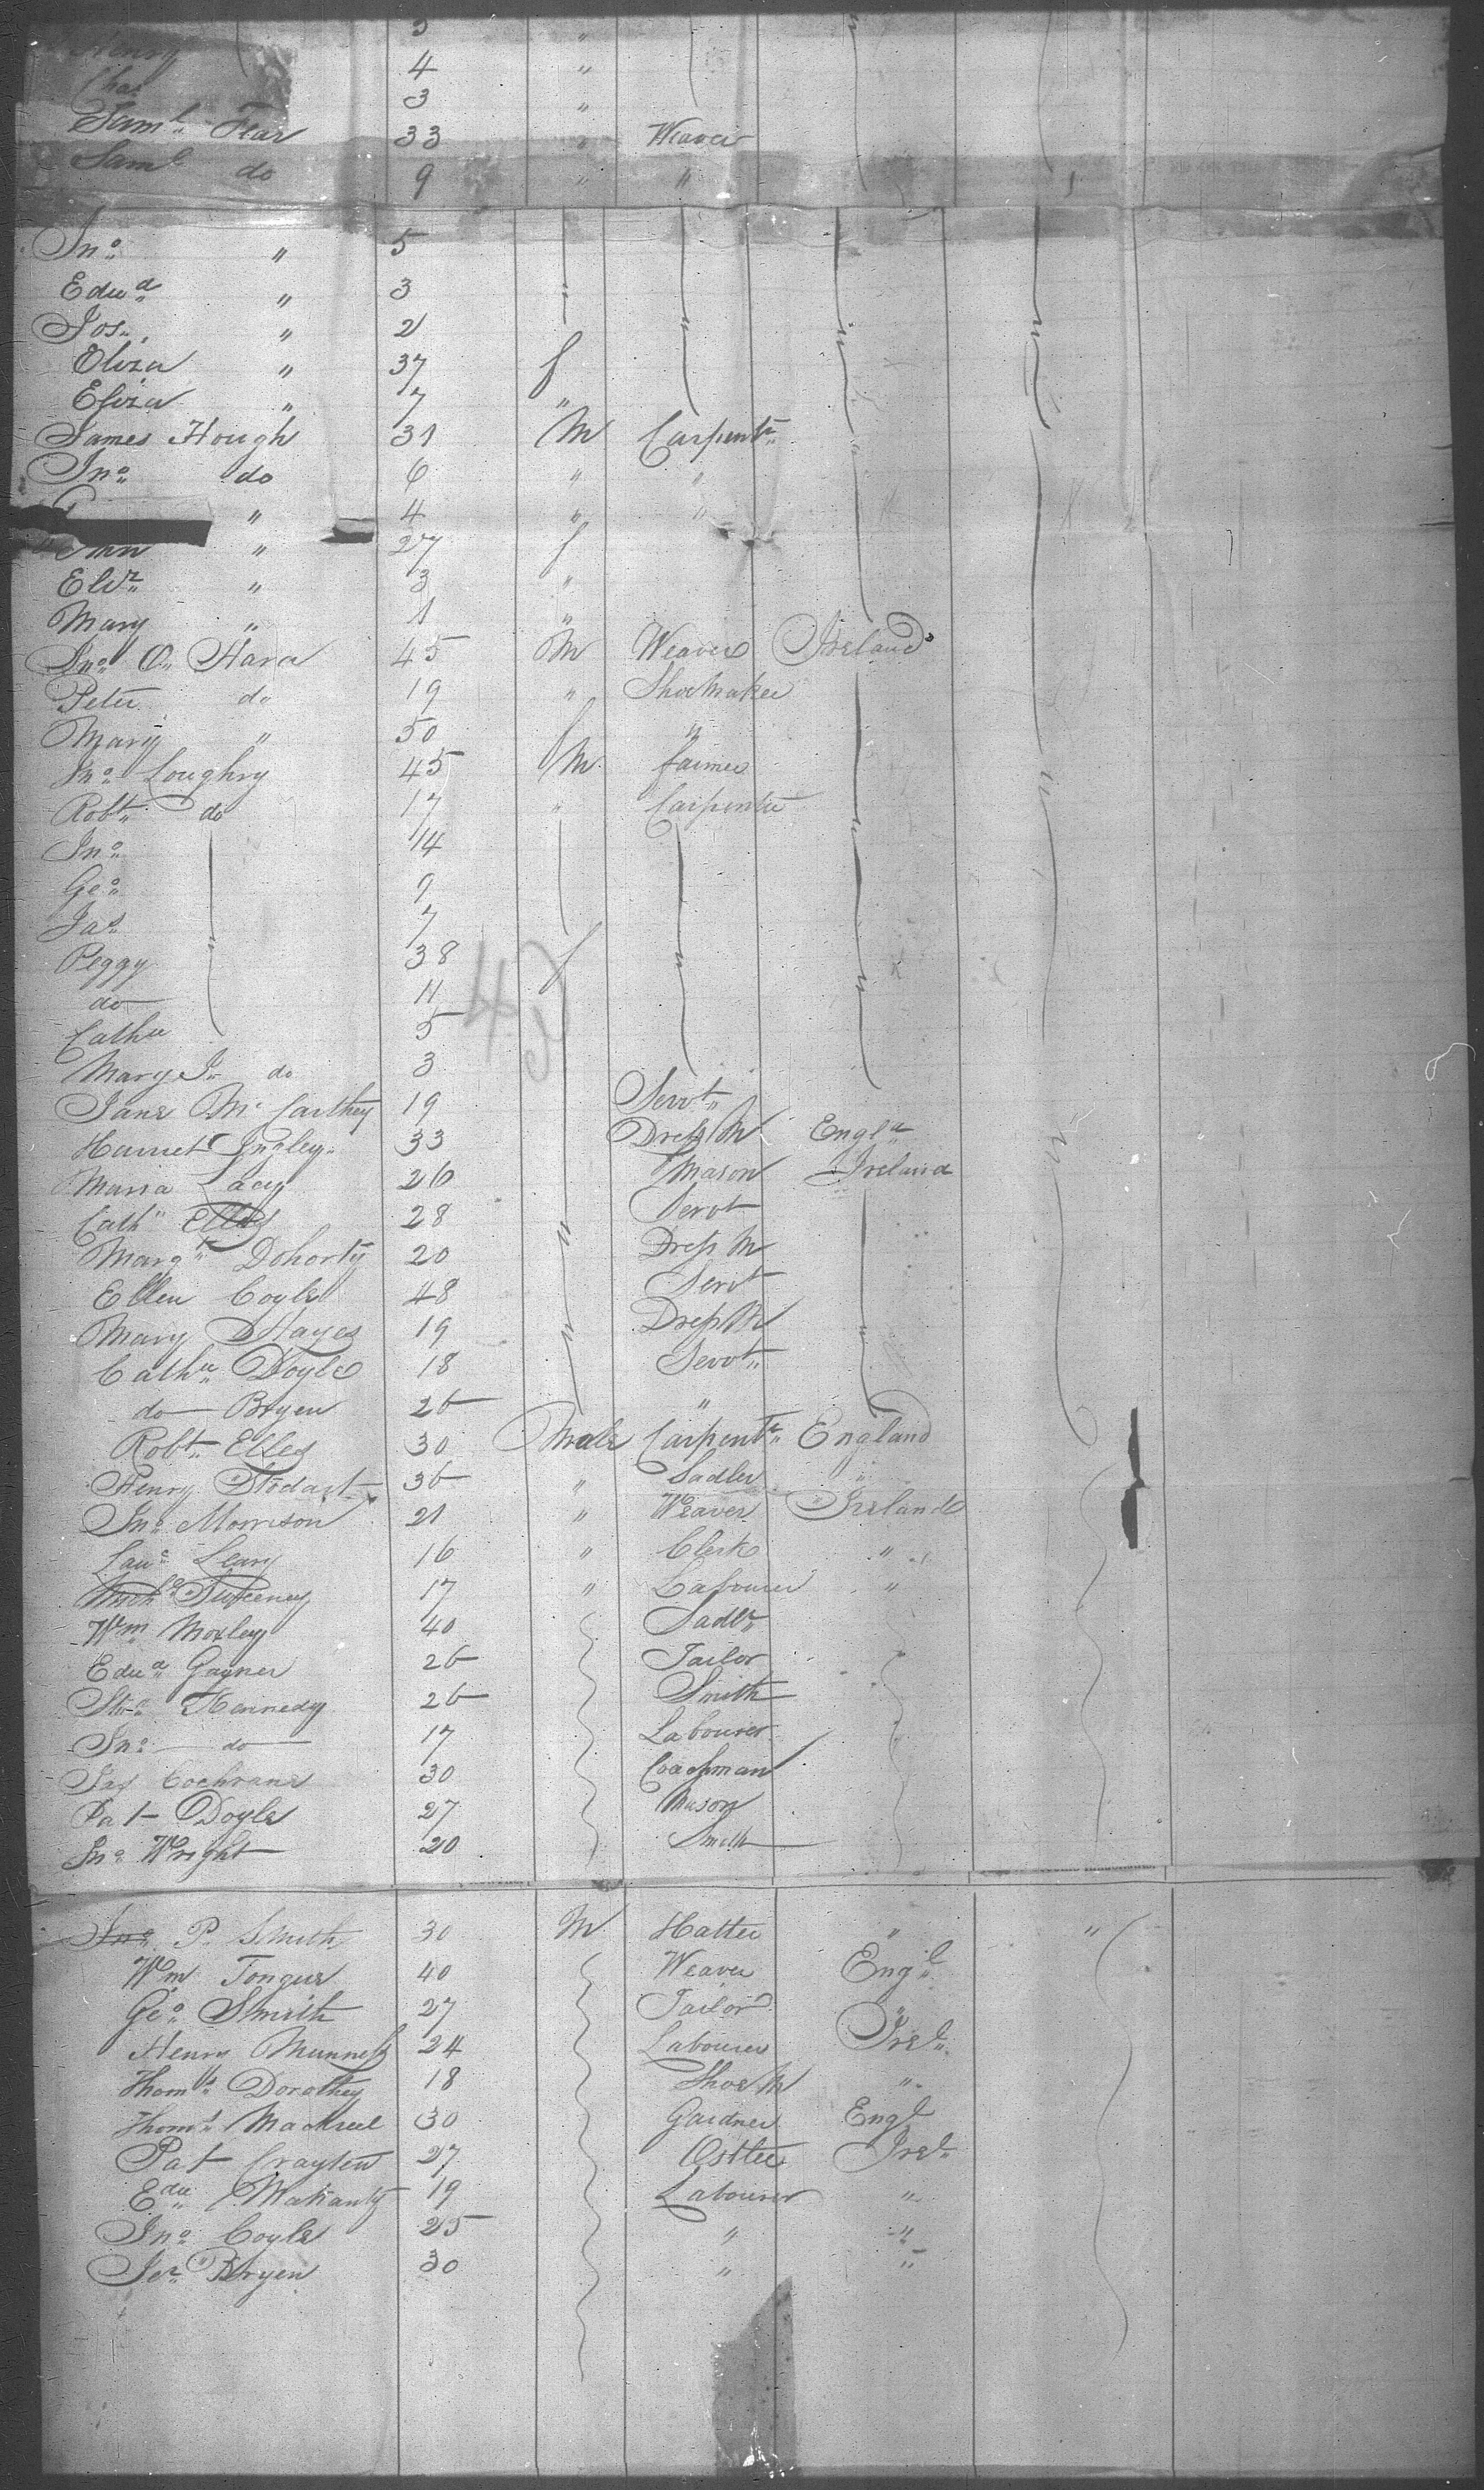 3 "
Henry 4 "
Chas 3 "
Saml Fear 33 " Weaver
Saml do 9 " "
Jno " 5
Edwd " 3 "
Jos " 2
Eliza " 37 f
Eliza " 7 "
James Hough 31 M Carpentr
Jno do 6 " "
" 4 " "
Ann " 27 f
Elizr " 3 "
Mary " 1 "
Jno O. Hara 45 M Weaver Ireland
Peter do 19 " Shoemaker
Mary " 50 f "
Jno Loughry 45 M farmer
Robt do 17 " Carpenter
Jno 14
Geo 9
Jas 7
Peggy 38 f
do 11
Cathe 5
Mary J do 3
Jane McCarthey 19 Servt
Harriet 33 Dress M Engld
Maria Lacy 26 Mason Ireland
Cath Elles 28 Servt
Margt Dohorty 20 Dress M
Ellen Coyle 48 Servt
Mary Hayes 19 Dress M
Cathe Doyle 18 Servt
do Bryen 26 "
Robt Elles 30 Male Carpentr England
Henry Stodart 36 " Sadler "
Jno Morrison 21 " Weaver Ireland
Lawe Leary 16 " Clerk "
Michl Sweeney 17 " Labourer "
Wm Moxley 40 Sadlr
Edwd Gayner 26 Tailor
Kennedy 26 Smith
Jno do 17 Labourer
Jas Cochrane 30 Coachman
Pat Doyle 27 Mason
Jno Wright 20 Smith
Jno P. Smith 30 M Hatter " "
Wm Tongue 40 Weaver Engl
Geo Smith 27 Tailor "
Henry Munness 24 Labourer Irel
Thoms Dorothey 18 Shoe M "
Thoms Mackreel 30 Gardner Engl
Pat Crayten 27 Ostler Irel
Edw 19 Labourer "
Jno Coyle 25 " "
Jer Bryen 30 " "
45